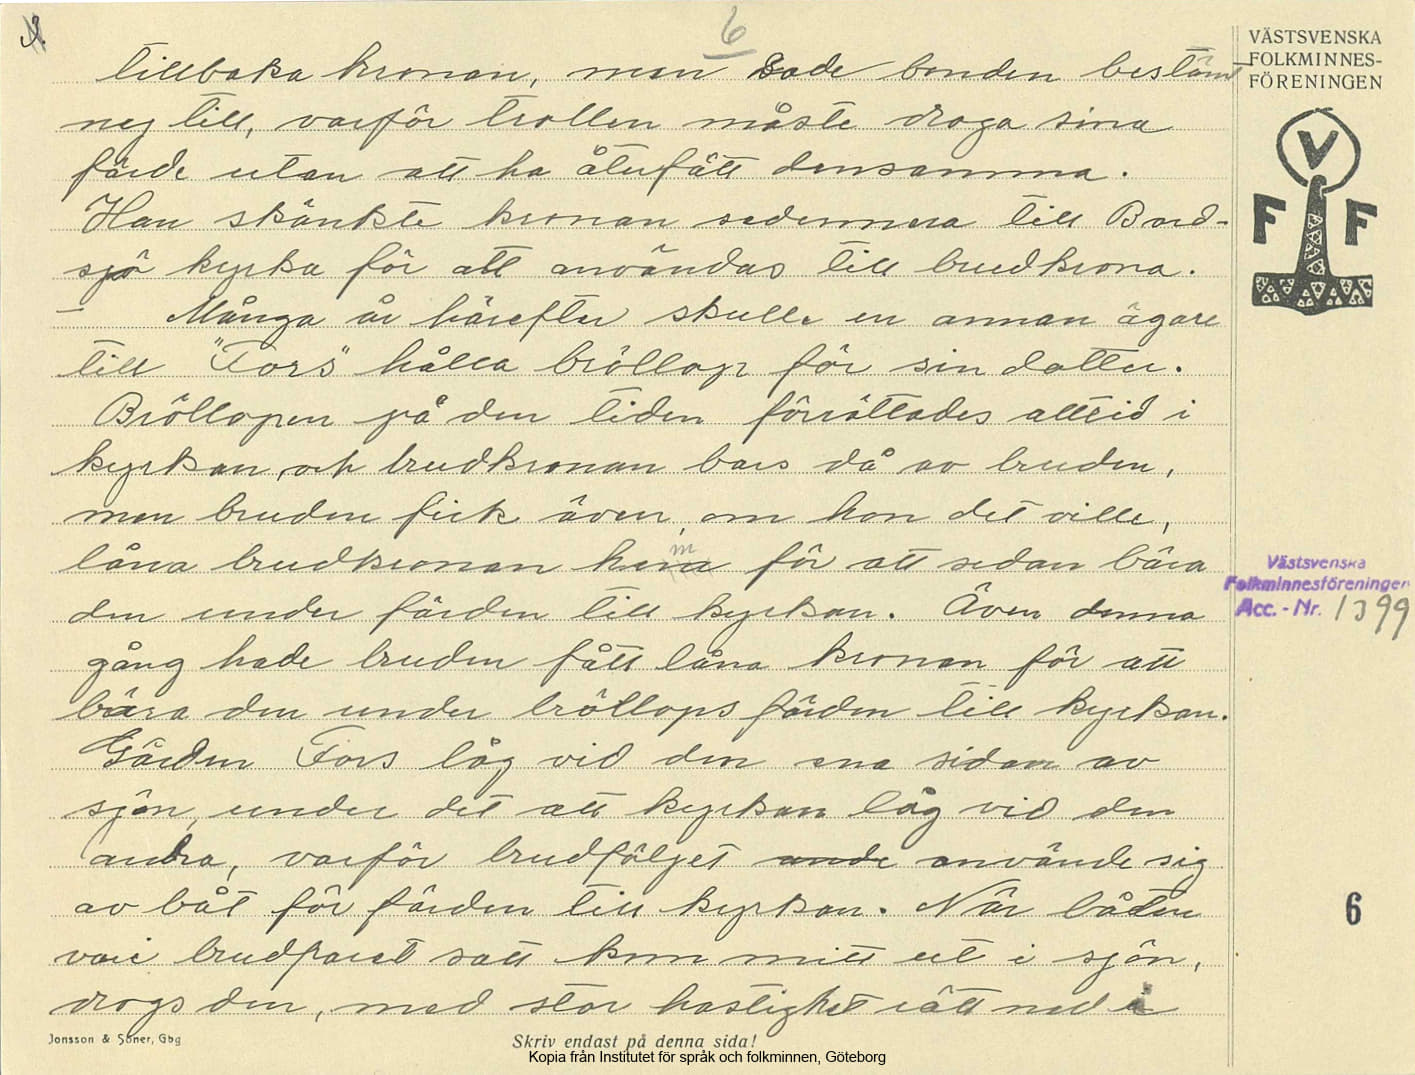 3.
6
VÄSTSVENSKA
FOLKMINNES-
FÖRENINGEN
V
F F
tillbaka kronan, men sade bonden bestämt
nej till, varför trollen måste draga sina
färde utan att ha återfått densamma.
Han skänkte kronan sedermera till Bord-
sjö kyrka för att användas till brudkrona.
— Många år härefter skulle en annan ägare
till "Fors" hålla bröllop för sin dotter.
Bröllopen på den tiden förrättades alltid i
kyrkan, och brudkronan bars då av bruden,
men bruden fick även, om hon det ville,
låna brudkronan hem för att sedan bära
den under färden till kyrkan. Även denna
gång hade bruden fått låna kronan för att
bära den under bröllopsfärden till kyrkan.
Gården Fors låg vid den ena sidan av
sjön, under det att kyrkan låg vid den
andra, varför brudföljet använde sig
av båt för färden till kyrkan. När båten
vari brudparet satt kom mitt ut i sjön,
drogs den, med stor hastighet rätt ned i
Västsvenska
Folkminnesföreningen
Acc. - Nr. 1399
6
Jonsson & Söner, Gbg
Skriv endast på denna sida!
Kopia från Institutet för språk och folkminnen, Göteborg